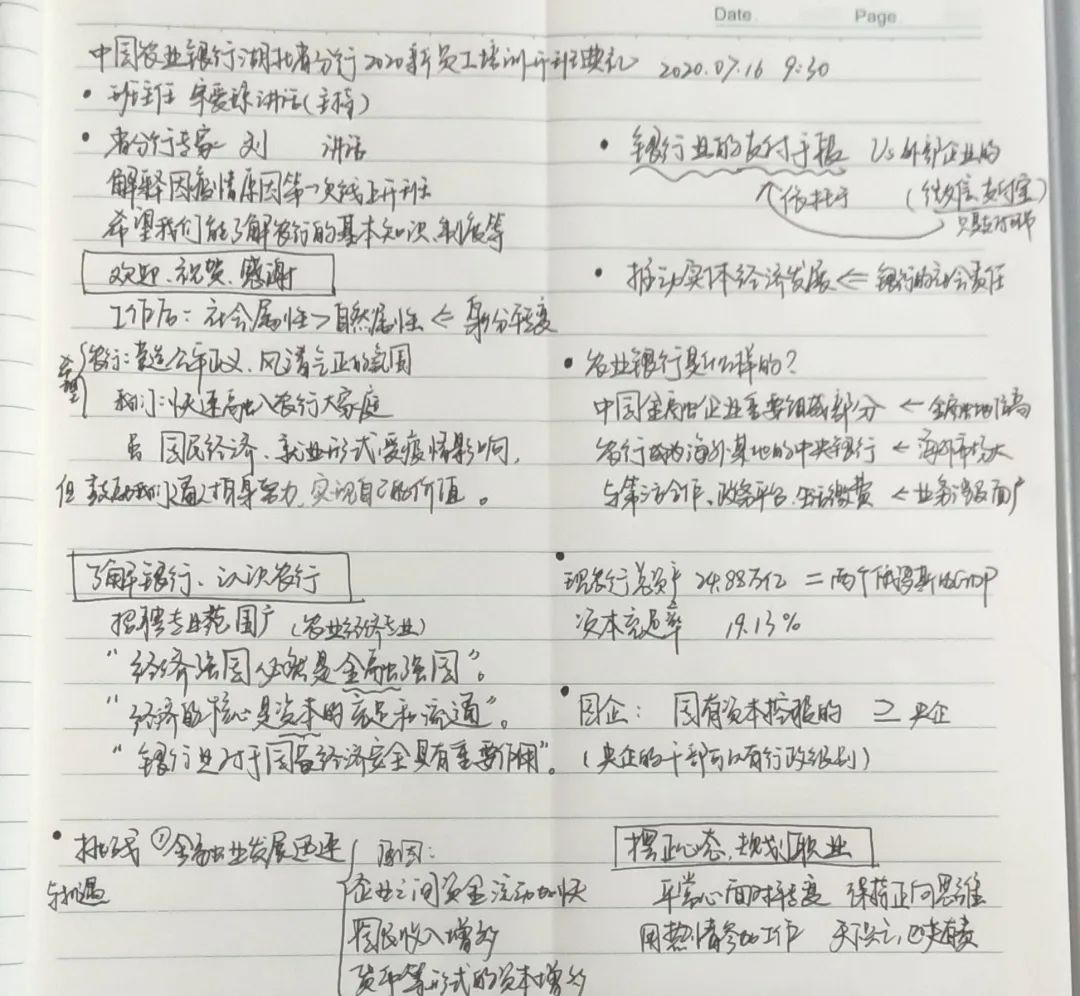 Date Page
中国农业银行湖北省分行2020新员工培训开班典礼 2020.07.16 9:30
• 班主任 讲话(主持)
• 省分行专家 刘 讲话
解释因疫情原因第一次线上开班
希望我们能了解农行的基本知识、制度等
欢迎、祝贺、感谢
工作后: 社会属性>自然属性 ← 身份转变
希望 农行: 营造公平正义、风清气正的氛围
我们: 快速融入农行大家庭
虽 国民经济、就业形式受疫情影响,
但 鼓励我们通过自身努力,实现自己的价值。
了解银行、认识农行
招聘专业范围广 (农业经济专业)
“经济强国必然是金融强国”。
“经济的核心是资本的充足和流通”。
“银行业对于国家经济安全具有重要作用”。
• 挑战与机遇 ①金融业发展迅速
原因:
企业之间资金流动加快
国民收入增多
货币等形式的资本增多
• 银行业的支付手段 Vs 外部企业的
依托于 (微信支付宝)
• 推动实体经济发展 ⇐ 银行的社会责任
• 农业银行是什么样的?
中国金融企业重要组成部分 ← 金融地位高
农行成为海外某地的中央银行 ← 海外市场大
与第三方合作、政务平台、生活缴费 ← 业务涉及面广
• 现农行总资产 24.88万亿 = 两个俄罗斯的GDP
资本充足率 19.13%
• 国企: 国有资本控股的 ⊇ 央企
(央企的干部可以有行政级别)
摆正心态,规划职业
平常心面对转变 保持正向思维
用热情参加工作